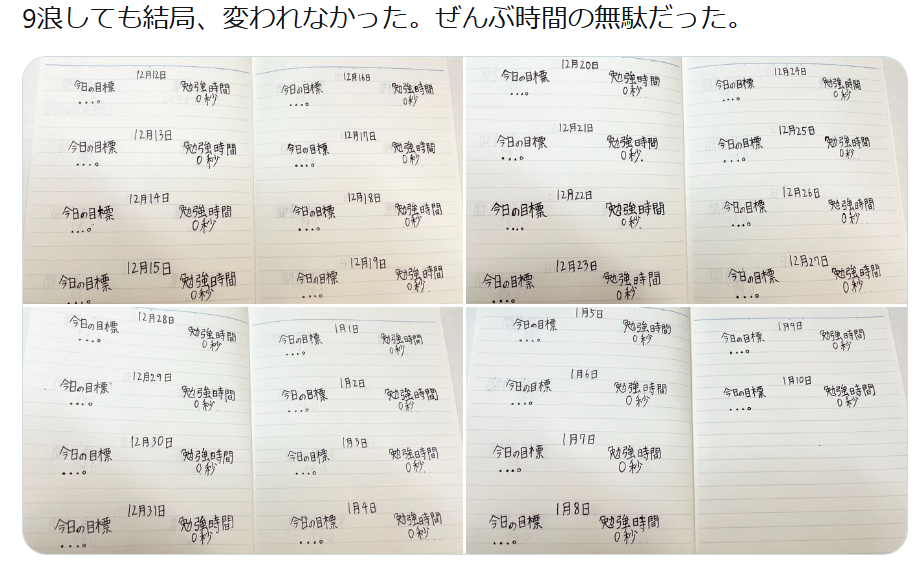 9浪しても結局、変われなかった。ぜんぶ時間の無駄だった。
12月12日
今日の目標 勉強時間
...。 0秒
12月13日
今日の目標 勉強時間
...。 0秒
12月14日
今日の目標 勉強時間
...。 0秒
12月15日
今日の目標 勉強時間
...。 0秒
12月16日
今日の目標 勉強時間
...。 0秒
12月17日
今日の目標 勉強時間
...。 0秒
12月18日
今日の目標 勉強時間
...。 0秒
12月19日
今日の目標 勉強時間
...。 0秒
12月20日
今日の目標 勉強時間
...。 0秒
12月21日
今日の目標 勉強時間
...。 0秒
12月22日
今日の目標 勉強時間
...。 0秒
12月23日
今日の目標 勉強時間
...。 0秒
12月24日
今日の目標 勉強時間
...。 0秒
12月25日
今日の目標 勉強時間
...。 0秒
12月26日
今日の目標 勉強時間
...。 0秒
12月27日
今日の目標 勉強時間
...。 0秒
12月28日
今日の目標 勉強時間
...。 0秒
12月29日
今日の目標 勉強時間
...。 0秒
12月30日
今日の目標 勉強時間
...。 0秒
12月31日
今日の目標 勉強時間
...。 0秒
1月1日
今日の目標 勉強時間
...。 0秒
1月2日
今日の目標 勉強時間
...。 0秒
1月3日
今日の目標 勉強時間
...。 0秒
1月4日
今日の目標 勉強時間
...。 0秒
1月5日
今日の目標 勉強時間
...。 0秒
1月6日
今日の目標 勉強時間
...。 0秒
1月7日
今日の目標 勉強時間
...。 0秒
1月8日
今日の目標 勉強時間
...。 0秒
1月9日
今日の目標 勉強時間
...。 0秒
1月10日
今日の目標 勉強時間
...。 0秒